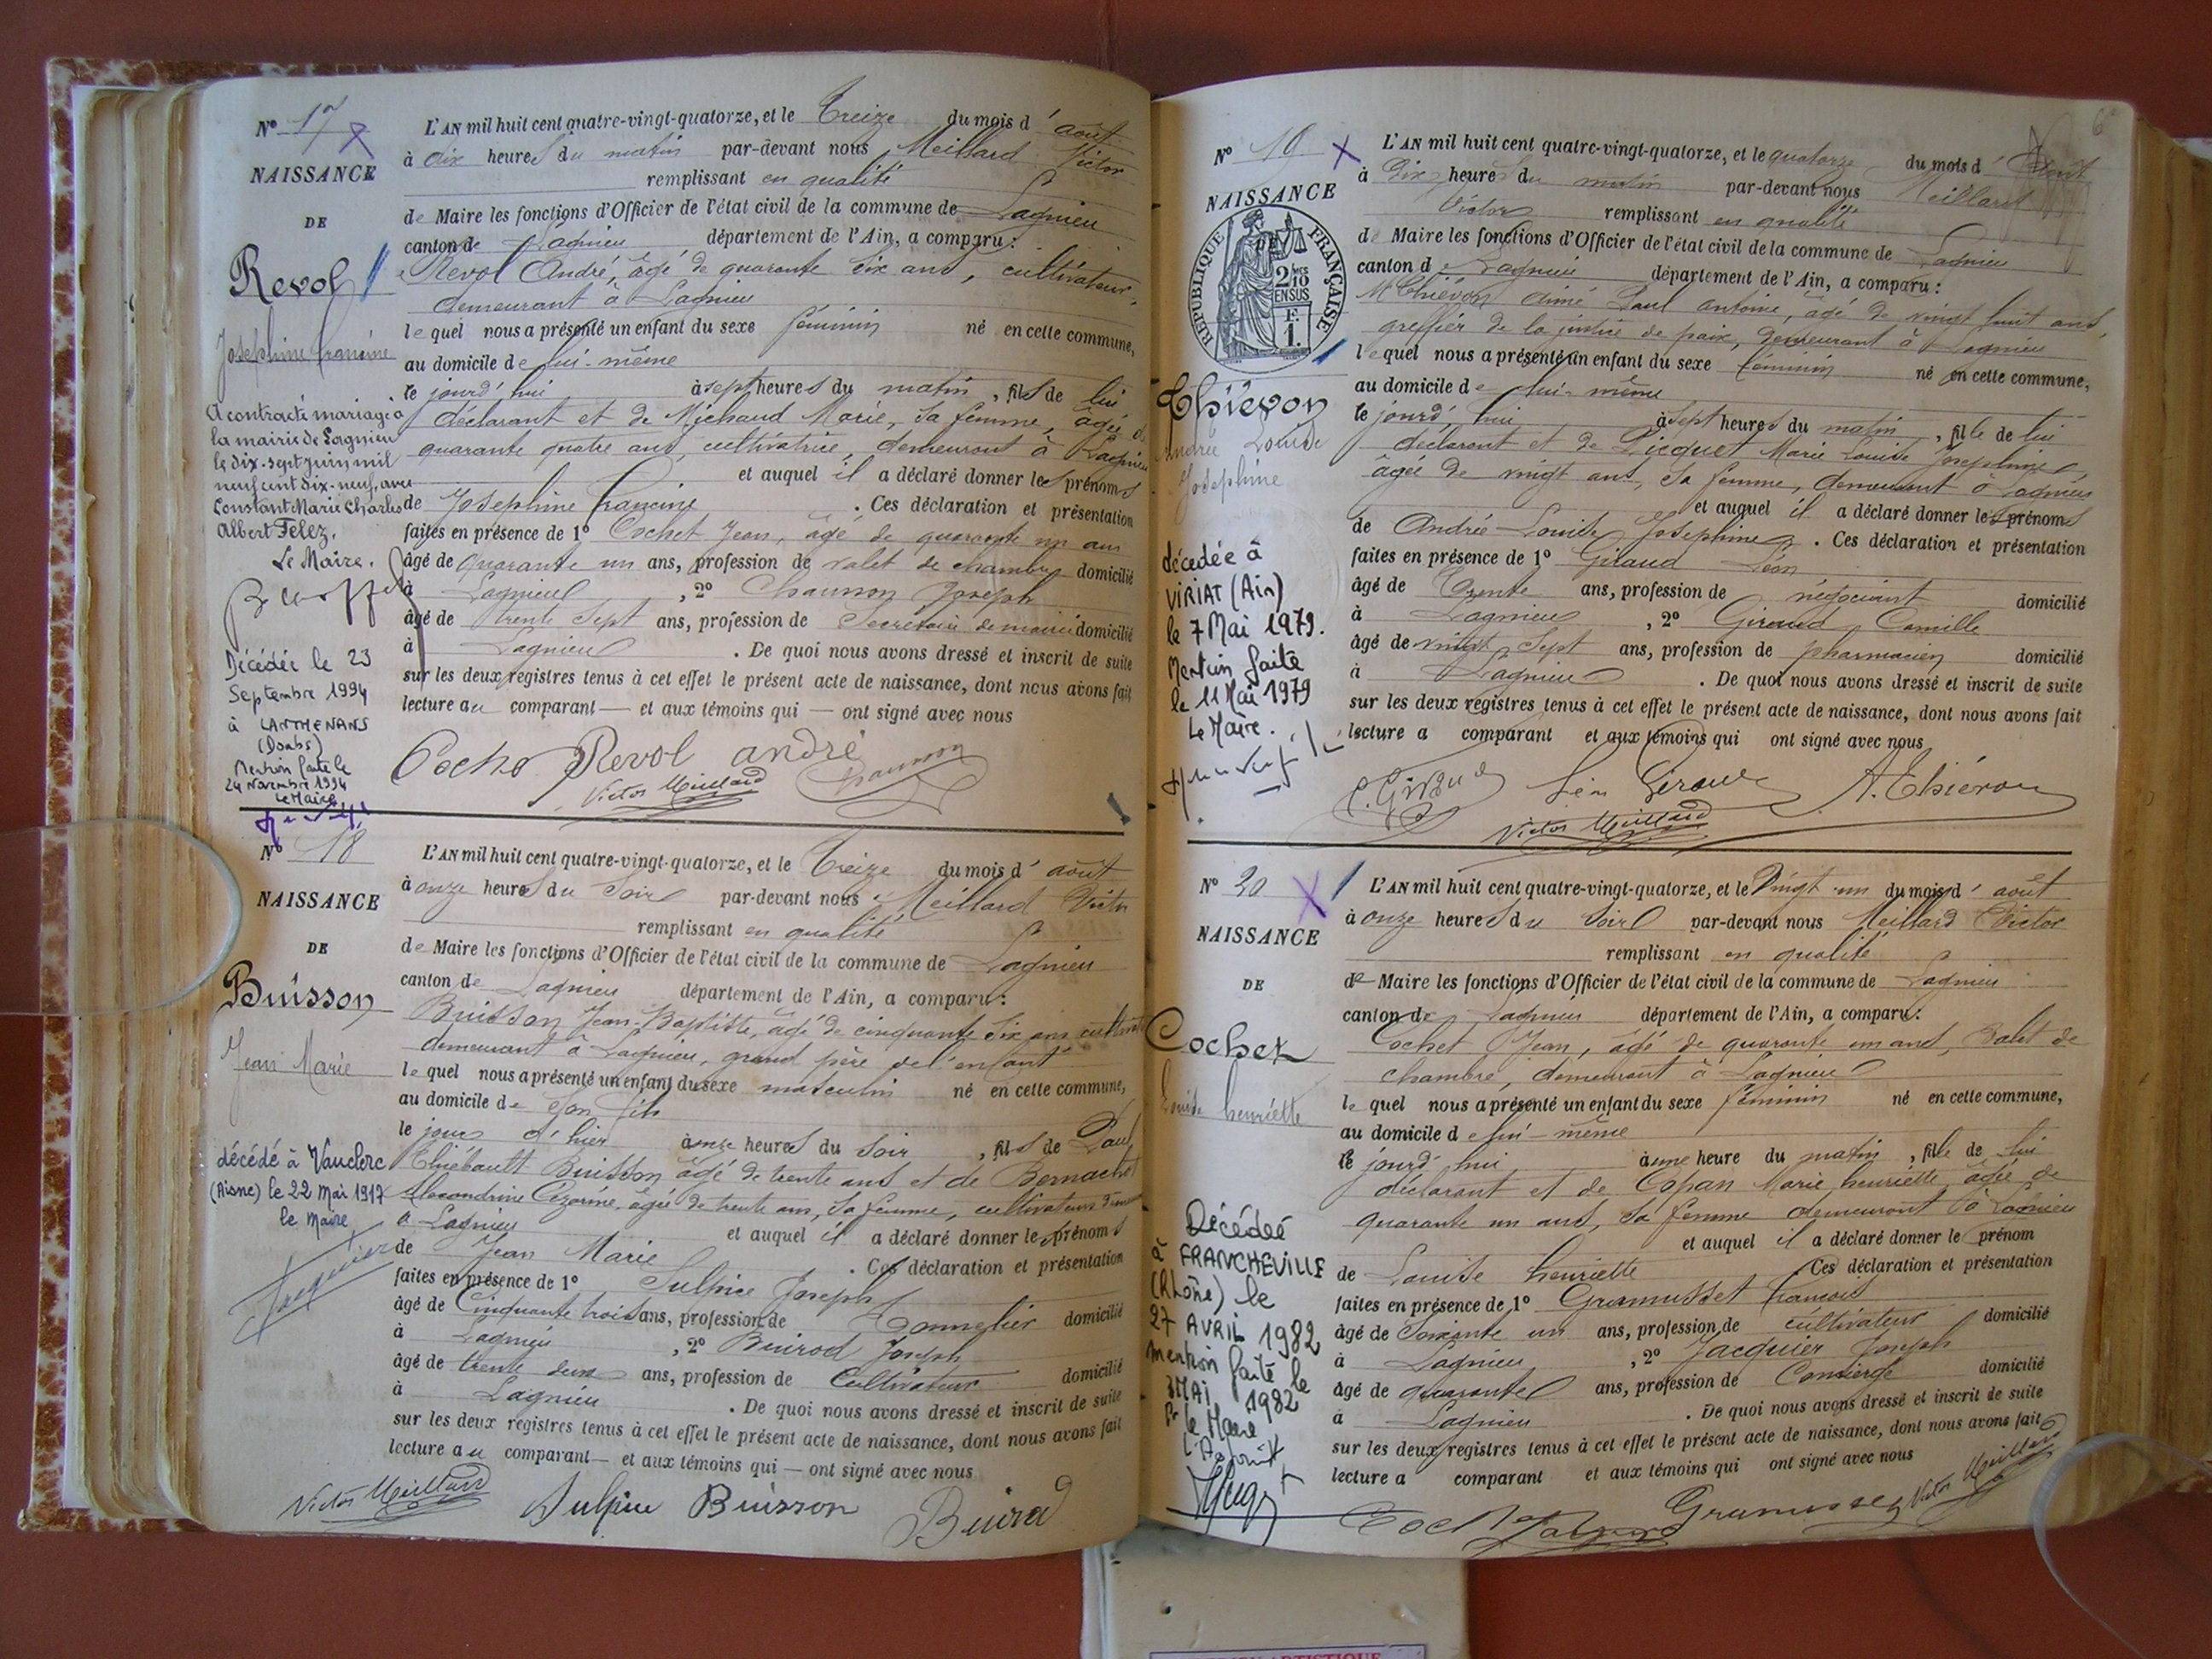 N° 17
NAISSANCE
DE
Revol
Joséphine Francine
A contracté mariage à
la mairie de Lagnieu
le dix-sept juin mil
neuf cent dix-neuf, avec
Constant Marie Charles
Albert Felez.
Le Maire.
Décédée le 23
Septembre 1994
à LANTHENANS
(Doubs)
Mention faite le
24 Novembre 1994
Le Maire
L'AN mil huit cent quatre-vingt-quatorze, et le Treize du mois d'août
à dix heures du matin par-devant nous Meillard Victor
remplissant en qualité
de Maire les fonctions d'Officier de l'état civil de la commune de Lagnieu
canton de Lagnieu département de l'Ain, a comparu:
Revol André, âgé de quarante six ans, cultivateur,
demeurant à Lagnieu
lequel nous a présenté un enfant du sexe féminin né en cette commune,
au domicile de lui-même
le jourd'hui à sept heures du matin, fils de lui
déclarant et de Michaud Marie, sa femme, âgée de
quarante quatre ans, cultivatrice, demeurant à Lagnieu
et auquel il a déclaré donner les prénoms
de Joséphine Francine. Ces déclaration et présentation
faites en présence de 1° Cochet Jean, âgé de quarante un ans
âgé de quarante un ans, profession de valet de chambre domicilié
à Lagnieu, 2° Chaumon Joseph
âgé de trente sept ans, profession de Secrétaire de mairie domicilié
à Lagnieu. De quoi nous avons dressé et inscrit de suite
sur les deux registres tenus à cet effet le présent acte de naissance, dont nous avons fait
lecture au comparant — et aux témoins qui — ont signé avec nous
Revol andré
Victor Meillard
N° 18
NAISSANCE
DE
Buisson
Jean Marie
décédé à Vauclerc
(Aisne) le 22 Mai 1917
le Maire
L'AN mil huit cent quatre-vingt-quatorze, et le Treize du mois d'août
à onze heures du soir par-devant nous Meillard Victor
remplissant en qualité
de Maire les fonctions d'Officier de l'état civil de la commune de Lagnieu
canton de Lagnieu département de l'Ain, a comparu:
Buisson Jean-Baptiste, âgé de cinquante six ans
demeurant à Lagnieu, grand père de l'enfant
lequel nous a présenté un enfant du sexe masculin né en cette commune,
au domicile de son fils
le jour d'hier à onze heures du soir, fils de Paul
Thiébault Buisson âgé de trente ans et de
âgée de trente ans, sa femme, cultivateurs
à Lagnieu et auquel il a déclaré donner les prénoms
de Jean Marie. Ces déclaration et présentation
faites en présence de 1° Sulpice Joseph
âgé de Cinquante trois ans, profession de Tonnelier domicilié
à Lagnieu, 2° Buirod Joseph
âgé de trente deux ans, profession de Cultivateur domicilié
à Lagnieu. De quoi nous avons dressé et inscrit de suite
sur les deux registres tenus à cet effet le présent acte de naissance, dont nous avons fait
lecture au comparant — et aux témoins qui — ont signé avec nous
Victor Meillard Sulpice Buisson Buirod
N° 19
NAISSANCE
DE
RÉPUBLIQUE FRANÇAISE
2/10
EN SUS
F.
1.
Thiévon
Andrée Louise
Joséphine
décédée à
VIRIAT (Ain)
le 7 Mai 1979.
Mention faite
le 11 Mai 1979
Le Maire.
L'AN mil huit cent quatre-vingt-quatorze, et le quatorze du mois d'Août
à Dix heures du matin par-devant nous Meillard
Victor remplissant en qualité
de Maire les fonctions d'Officier de l'état civil de la commune de Lagnieu
canton de Lagnieu département de l'Ain, a comparu:
M Thiévon Aimé Paul Antoine, âgé de vingt huit ans,
greffier de la justice de paix, demeurant à Lagnieu
lequel nous a présenté un enfant du sexe féminin né en cette commune,
au domicile de lui-même
le jourd'hui à sept heures du matin, fille de lui
déclarant et de Picquet Marie Louise Joséphine,
âgée de vingt ans, sa femme, demeurant à Lagnieu
et auquel il a déclaré donner les prénoms
de Andrée Louise Joséphine. Ces déclaration et présentation
faites en présence de 1° Giraud Léon
âgé de Trente ans, profession de négociant domicilié
à Lagnieu, 2° Giraud Camille
âgé de vingt sept ans, profession de pharmacien domicilié
à Lagnieu. De quoi nous avons dressé et inscrit de suite
sur les deux registres tenus à cet effet le présent acte de naissance, dont nous avons fait
lecture a comparant et aux témoins qui ont signé avec nous
C. Giraud Léon Giraud A. Thiévon
Victor Meillard
N° 20
NAISSANCE
DE
Cochet
Louise henriette
Décédée
à FRANCHEVILLE
(Rhône) le
27 AVRIL 1982
mention faite le
3 MAI 1982
Pr le Maire
L'Adjoint
L'AN mil huit cent quatre-vingt-quatorze, et le Vingt un du mois d'août
à onze heures du soir par-devant nous Meillard Victor
remplissant en qualité
de Maire les fonctions d'Officier de l'état civil de la commune de Lagnieu
canton de Lagnieu département de l'Ain, a comparu:
Cochet Jean, âgé de quarante un ans, Valet de
chambre, demeurant à Lagnieu
lequel nous a présenté un enfant du sexe féminin né en cette commune,
au domicile de lui-même
le jourd'hui à une heure du matin, fille de lui
déclarant et de Copan Marie henriette, âgée de
quarante un ans, sa femme demeurant à Lagnieu
et auquel il a déclaré donner le prénom
de Louise henriette Ces déclaration et présentation
faites en présence de 1° Gramusset François
âgé de Soixante un ans, profession de cultivateur domicilié
à Lagnieu, 2° Jacquier Joseph
âgé de quarante ans, profession de Concierge domicilié
à Lagnieu. De quoi nous avons dressé et inscrit de suite
sur les deux registres tenus à cet effet le présent acte de naissance, dont nous avons fait
lecture a comparant et aux témoins qui ont signé avec nous
Cochet Gramusset Victor Meillard